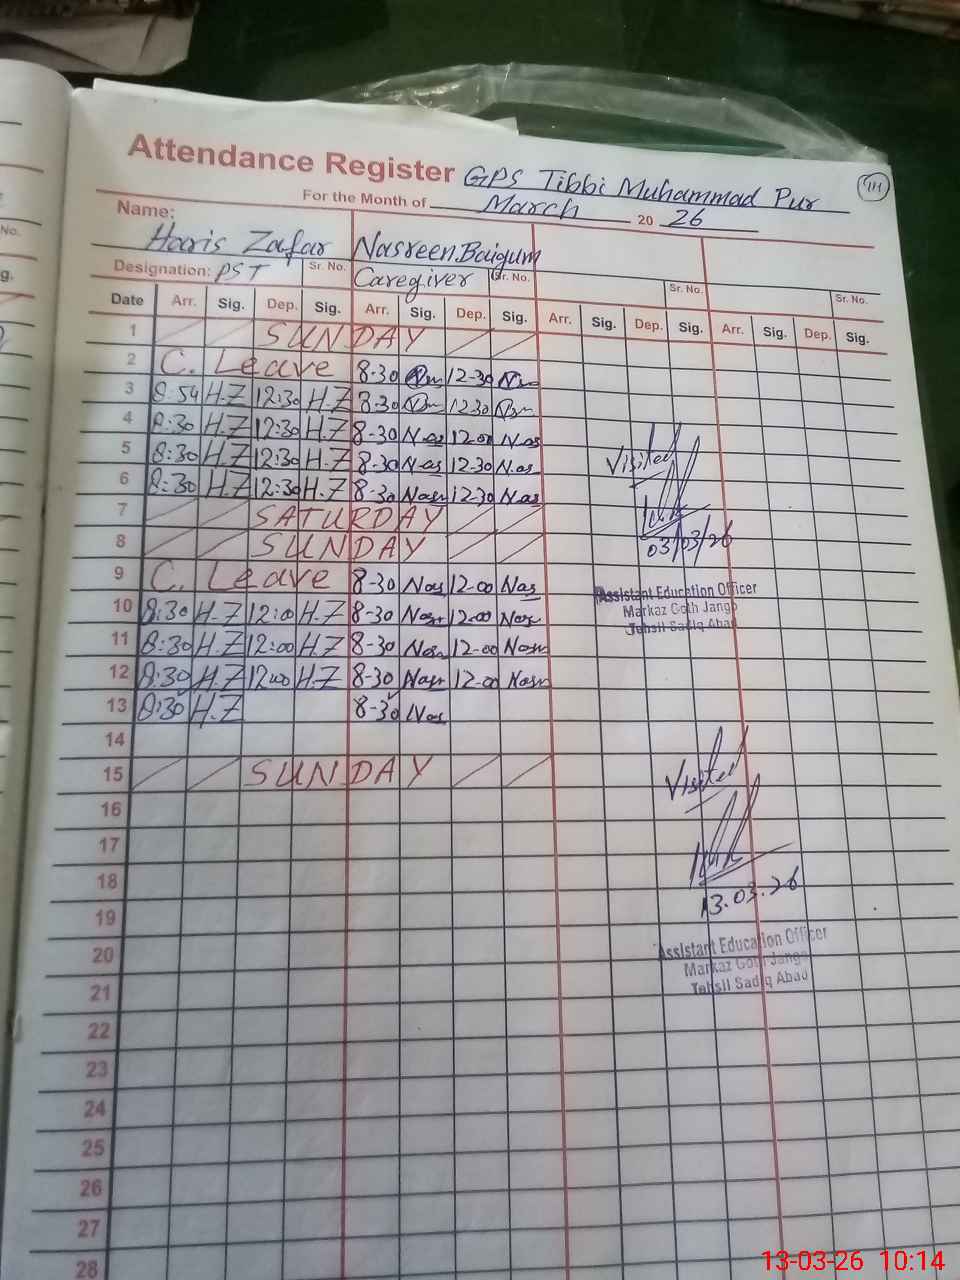 Attendance Register GPS Tibbi Muhammad Pur
For the Month of March 20 26
Name:
Haris Zafar Nasreen Baigum
Designation: PST Sr. No. Caregiver Sr. No. Sr. No. Sr. No.
Date Arr. Sig. Dep. Sig. Arr. Sig. Dep. Sig. Arr. Sig. Dep. Sig. Arr. Sig. Dep. Sig.
1 SUNDAY
2 C. Leave 8-30 12-30
3 8:54 H.Z 12:30 H.Z 8-30 12 30
4 8:30 H.Z 12:30 H.Z 8-30 Nas Nas
5 8:30 H.Z 12:30 H.Z 8-30 Nas 12-30 Nas
6 8:30 H.Z 12:30 H.Z 8-30 Nasr 12-30 Nas
7 SATURDAY
8 SUNDAY
9 C. Leave 8-30 Nas 12-00 Nas
10 8:30 H.Z 12:00 H.Z 8-30 Nasr 12-00 Nasr
11 8:30 H.Z 12:00 H.Z 8-30 Nasr 12-00 Nasr
12 8:30 H.Z 12:00 H.Z 8-30 Nasr 12-00 Nasr
13 8:30 H.Z 8-30 Nas
14
15 SUNDAY
16
17
18
19
20
21
22
23
24
25
26
27
28
Visited
03/03/26
Assistant Education Officer
Markaz Goth Jango
Tehsil Sadiq Abad
Visited
13.03.26
Assistant Education Officer
Markaz Goth Jango
Tehsil Sadiq Abad
No.
g.
13-03-26 10:14